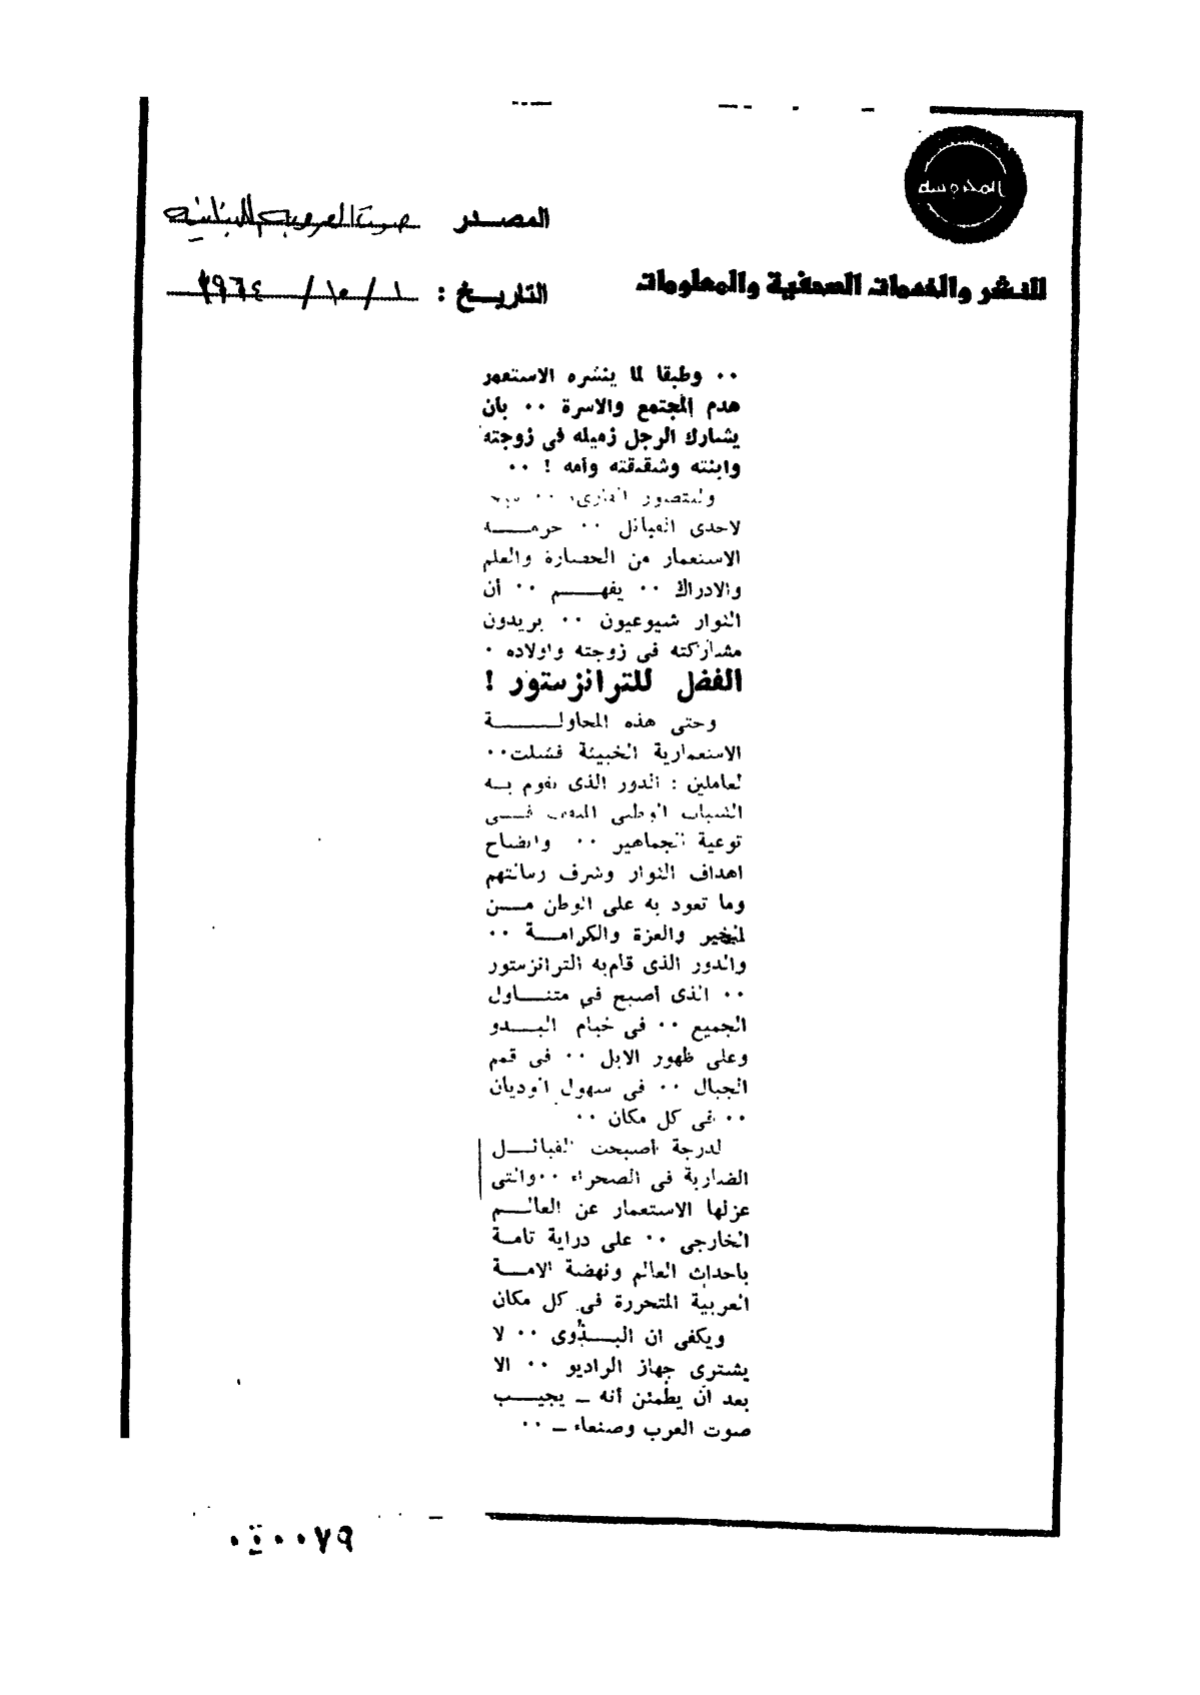 المحروسة
المصدر صوت العروبة اللبنانية
للنشر والخدمات الصحفية والمعلومات
التاريخ : ١ / ١٠ / ١٩٦٤
٠٠ وطبقا لما ينشره الاستعمر
هدم المجتمع والاسرة ٠٠ بأن
يشارك الرجل زميله فى زوجته
وابنته وشقيقته وأمه ! ٠٠
وليتصور القارىء ٠٠
لاحدى القبائل ٠٠ حرمه
الاستعمار من الحضارة والعلم
والادراك ٠٠ يفهم ٠٠ أن
الثوار شيوعيون ٠٠ يريدون
مشاركته فى زوجته واولاده ٠
الفضل للترانزستور !
وحتى هذه المحاولة
الاستعمارية الخبيثة فشلت٠٠
لعاملين : الدور الذى يقوم به
الشباب الوطنى فى
توعية الجماهير ٠٠ وايضاح
اهداف الثوار وشرف رسالتهم
وما تعود به على الوطن من
لخير والعزة والكرامة ٠٠
والدور الذى قام به الترانزستور
٠٠ الذى أصبح فى متناول
الجميع ٠٠ فى خيام البدو
وعلى ظهور الابل ٠٠ فى قمم
الجبال ٠٠ فى سهول الوديان
٠٠ فى كل مكان ٠٠
لدرجة أصبحت القبائل
الضاربة فى الصحراء ٠٠والتى
عزلها الاستعمار عن العالم
الخارجى ٠٠ على دراية تامة
بأحداث العالم ونهضة الامة
العربية المتحررة فى كل مكان
ويكفى ان البدوى ٠٠ لا
يشترى جهاز الراديو ٠٠ الا
بعد أن يطمئن أنه ـ يجيب
صوت العرب وصنعاء ـ ٠٠